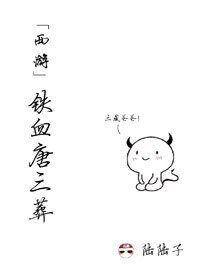 「西游」
铁血唐三葬
三藏爸爸!
陆陆子